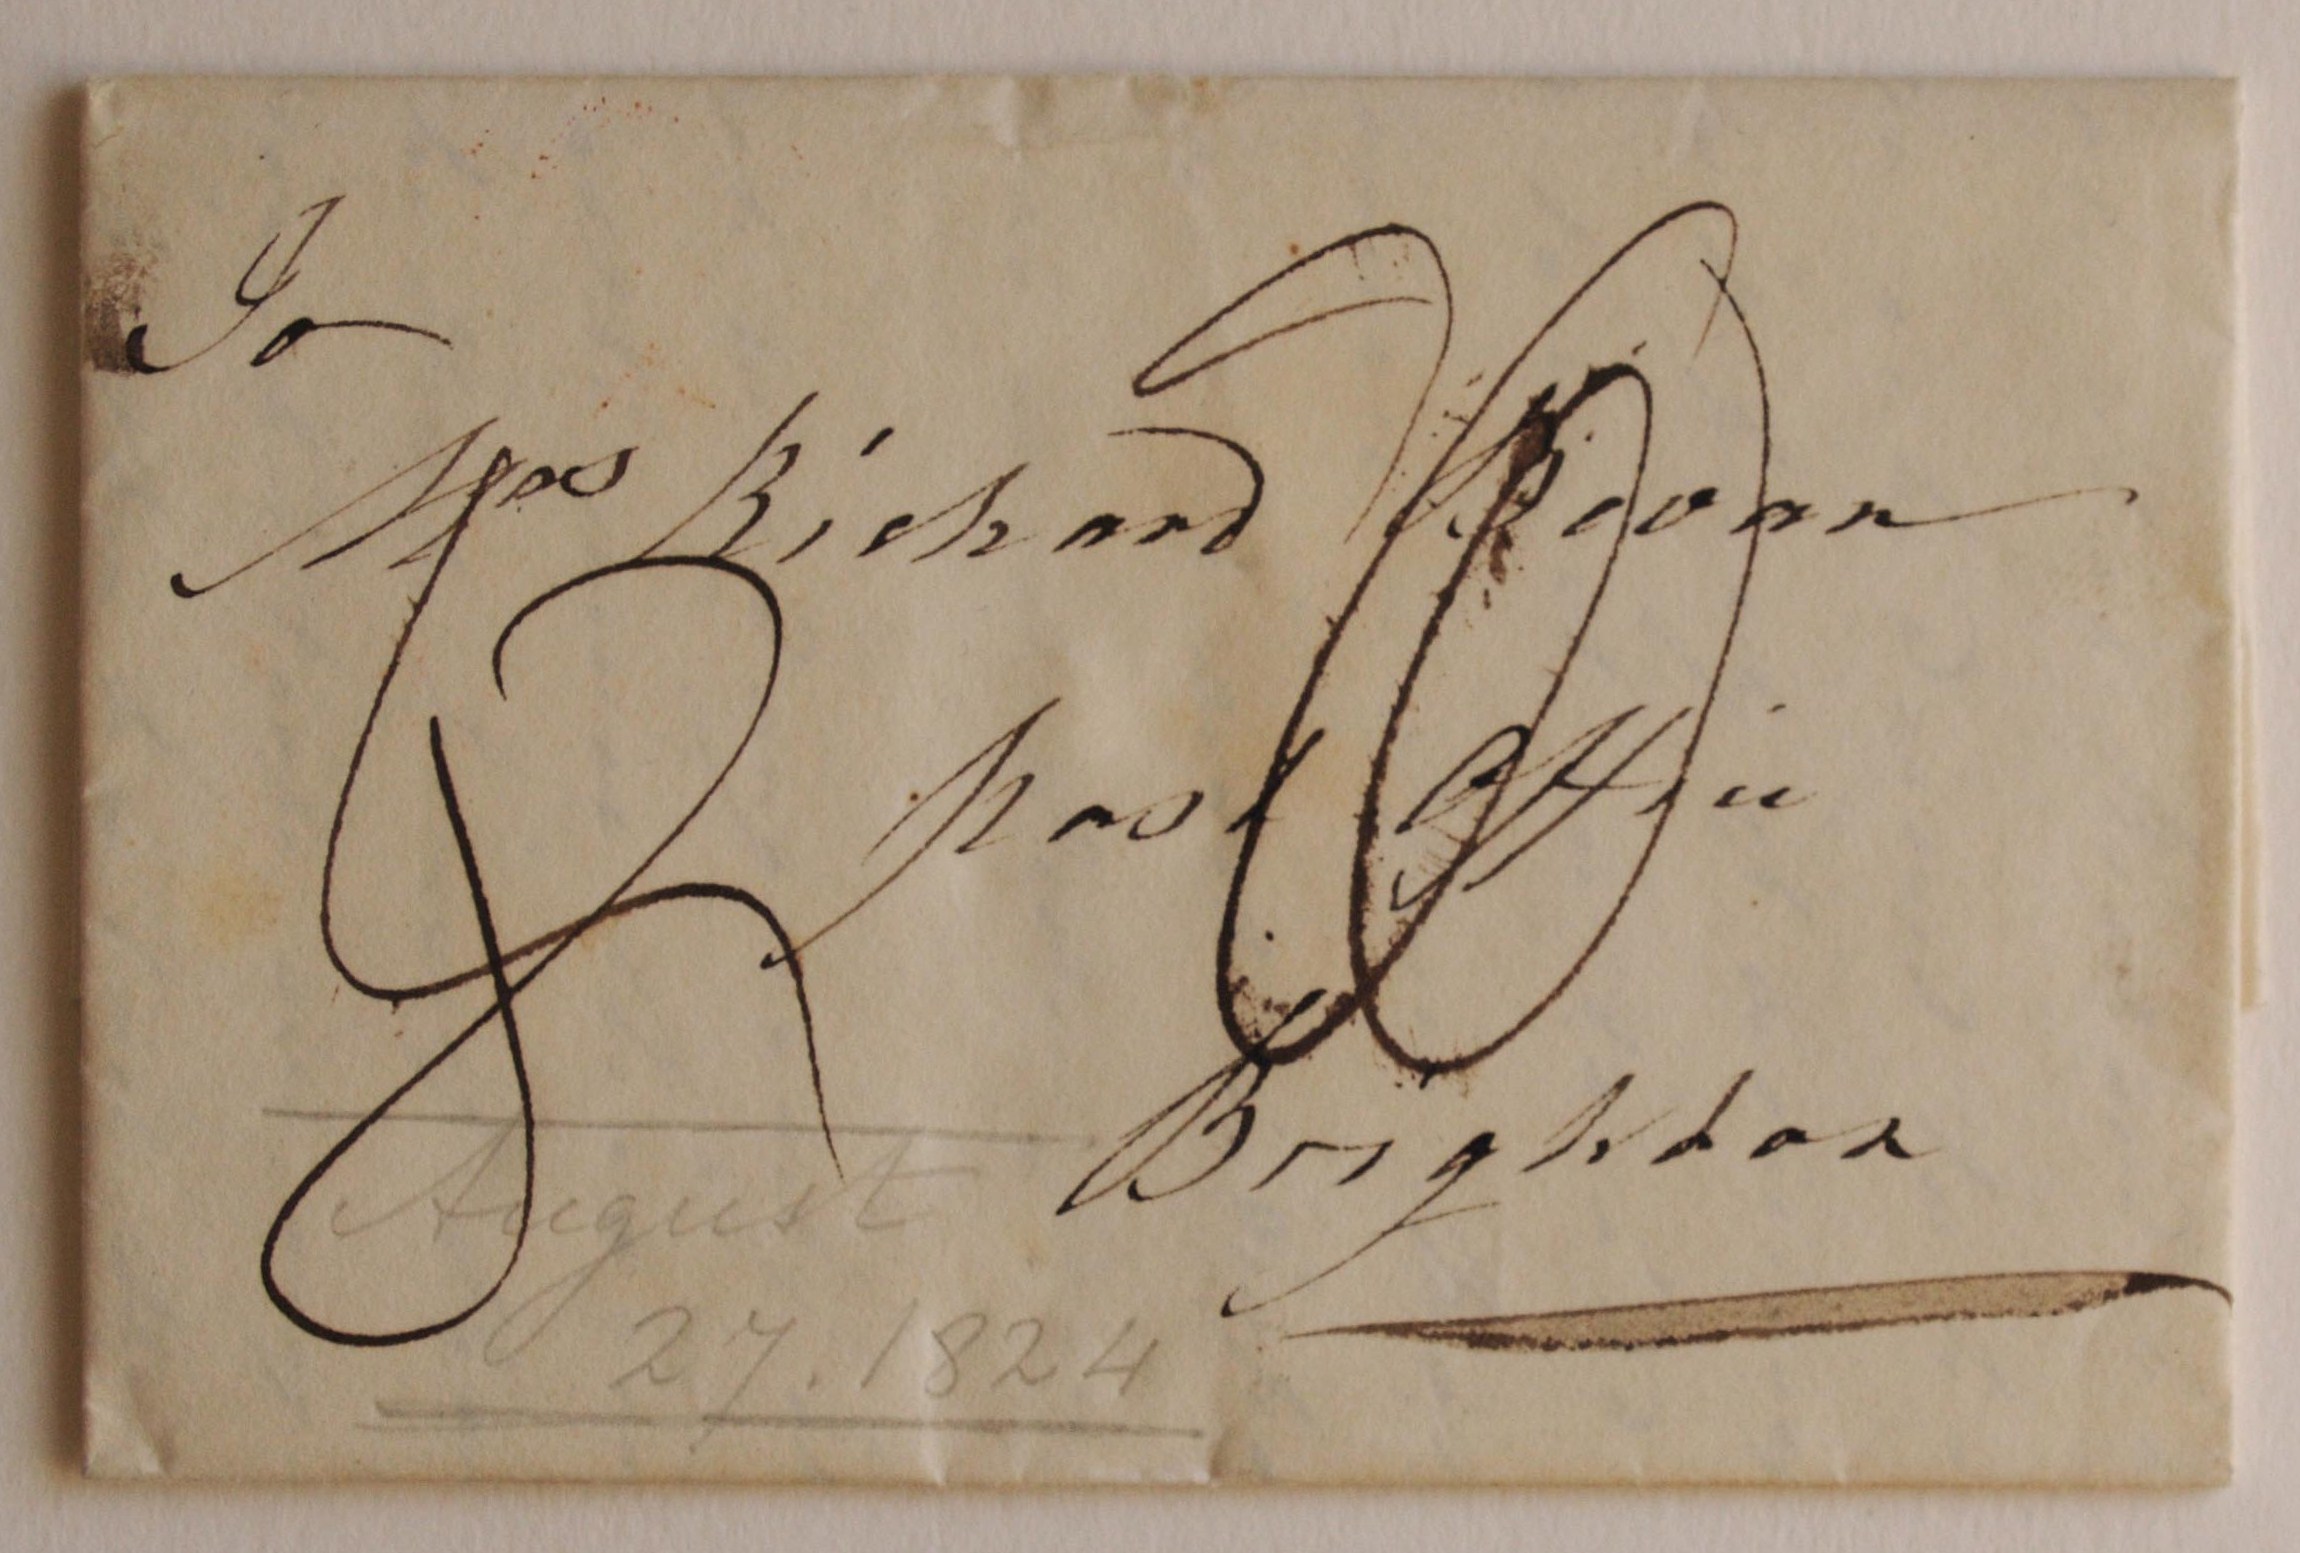 To
Mrs Richard Bevan
Post Office
Brighton
August
27. 1824